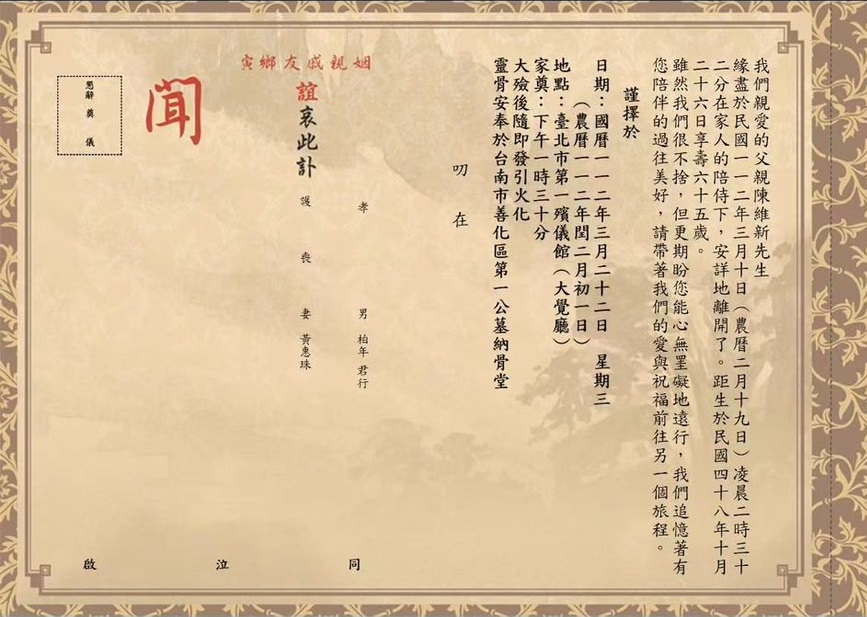 我們親愛的父親陳維新先生
緣盡於民國一一二年三月十日（農曆二月十九日）凌晨二時三十
二分在家人的陪侍下，安詳地離開了。距生於民國四十八年十月
二十六日享壽六十五歲。
雖然我們很不捨，但更期盼您能心無罣礙地遠行，我們追憶著有
您陪伴的過往美好，請帶著我們的愛與祝福前往另一個旅程。
謹擇於
日期：國曆一一二年三月二十二日 星期三
（農曆一一二年閏二月初一日）
地點：臺北市第一殯儀館（大覺廳）
家奠：下午一時三十分
大殮後隨即發引火化
靈骨安奉於台南市善化區第一公墓納骨堂
叨在
姻親戚友鄉寅
誼哀此訃
聞
孝男 柏年 君行
護喪妻 黃惠珠
懇辭 奠儀
同泣啟